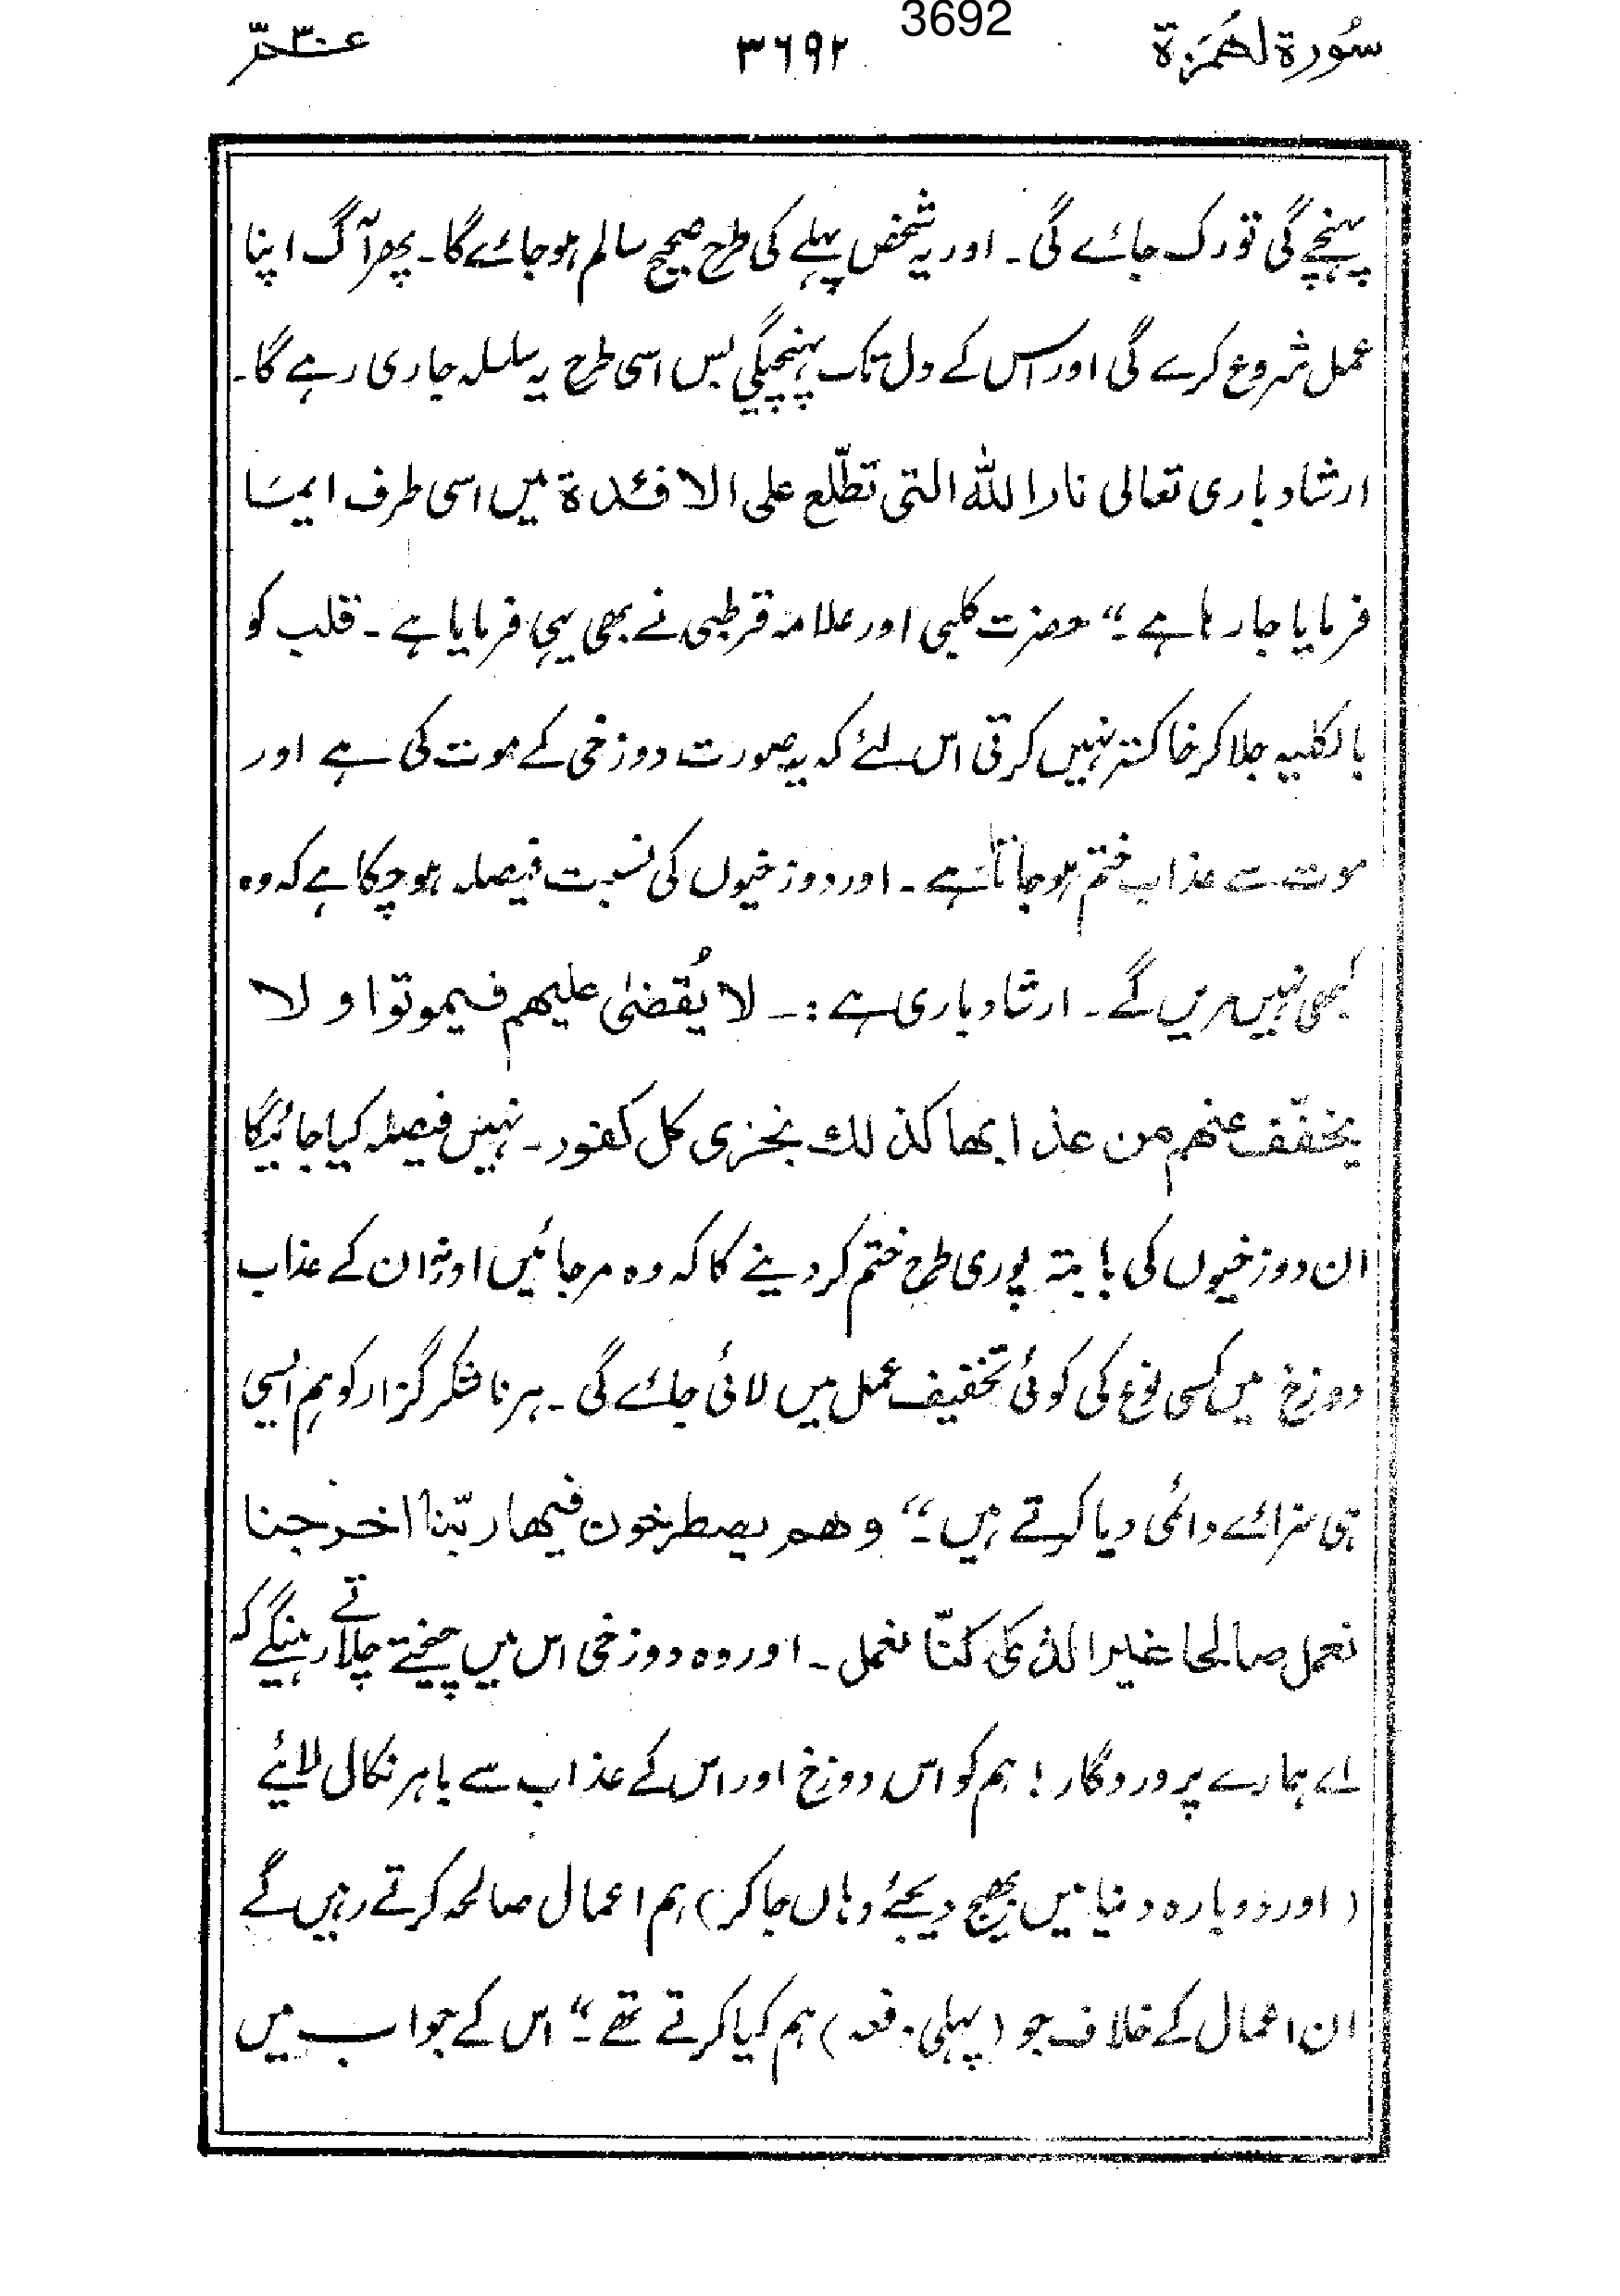 3692
سُورۃ لھُمَزۃ ۳۶۹۲ عمّ ۳۰
پہنچے گی تو رک جائے گی۔ اور یہ شخص پہلے کی طرح صحیح سالم ہوجائے گا۔ پھر آگ اپنا
عمل شروع کرے گی اور اس کے دل تک پہنچیگی بس اسی طرح یہ سلسلہ جاری رہے گا۔
ارشاد باری تعالی نار اللہ التی تطّلع علی الافئدۃ میں اسی طرف ایمَا
فرمایا جارہا ہے۔“ حضرت کلبی اور علامہ قرطبی نے بھی یہی فرمایا ہے۔ قلب کو
بالکلیہ جلا کر خاکستر نہیں کرتی اس لئے کہ یہ صورت دوزخی کے موت کی ہے اور
موت سے عذاب ختم ہوجاتا ہے۔ اور دوزخیوں کی نسبت فیصلہ ہوچکا ہے کہ وہ
کبھی نہیں مریں گے۔ ارشاد باری ہے :۔ لا یُقضیٰ علیھم فیموتوا و لا
یخفّف عنھم من عذابھا کذلك نجزی کل کفور۔ نہیں فیصلہ کیا جائیگا
ان دوزخیوں کی بابتہ پوری طرح ختم کردینے کا کہ وہ مرجائیں اور نہ ان کے عذاب
دوزخ میں کسی نوع کی کوئی تخفیف عمل میں لائی جائے گی۔ ہر ناشکر گزار کو ہم ایسی
ہی سزائے دائمی دیا کرتے ہیں۔“ وھم یصطرخون فیھا ربّنا اخرجنا
نعمل صالحا غیر الذی کنّا نعمل۔ اور وہ دوزخی اس میں چیختے چلاتے رہینگے کہ
اے ہمارے پروردگار! ہم کو اس دوزخ اور اس کے عذاب سے باہر نکال لائیے
(اور دوبارہ دنیا میں بھیج دیجئے وہاں جاکر) ہم اعمال صالحہ کرتے رہیں گے
ان اعمال کے خلاف جو (پہلی دفعہ) ہم کیا کرتے تھے۔“ اس کے جواب میں